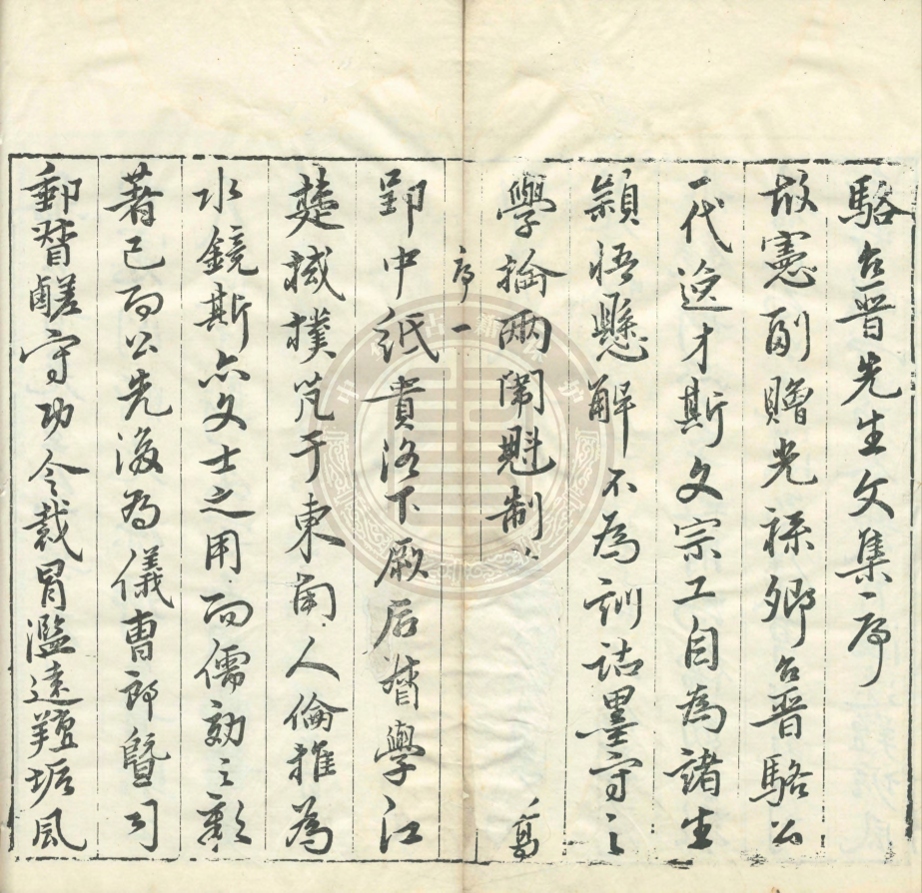 駱台晉先生文集序
故憲副贈光祿卿台晉駱公
一代逸才斯文宗工自為諸生
穎悟懸解不為訓詁墨守之
學掄兩闈魁制
序 一
郢中紙貴洛下厥后督學江
楚棫樸芃于東南人倫推為
水鏡斯亦文士之用而儒効之彰
著已而公先後為儀曹郎暨司
郵督鹺守功令裁冒濫遠羶垢風